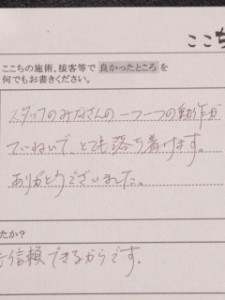 ここち
ここちの施術、接客等で 良かったところ を
何でもお書きください。
スタッフのみなさんの一つ一つの動作が
ていねいで、とても落ち着けます。
ありがとうございました。
たか?
信頼できるからです。